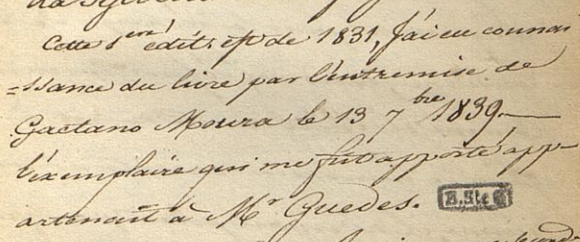 Cette 1ere édit. est de 1831, J'ai eu connai
=ssance du livre par l'entremise de
Gaetano Moura le 13 7bre 1839.—
l'exemplaire qui me fut apporté app-
artenait à Mr Guedes. B. Ste G